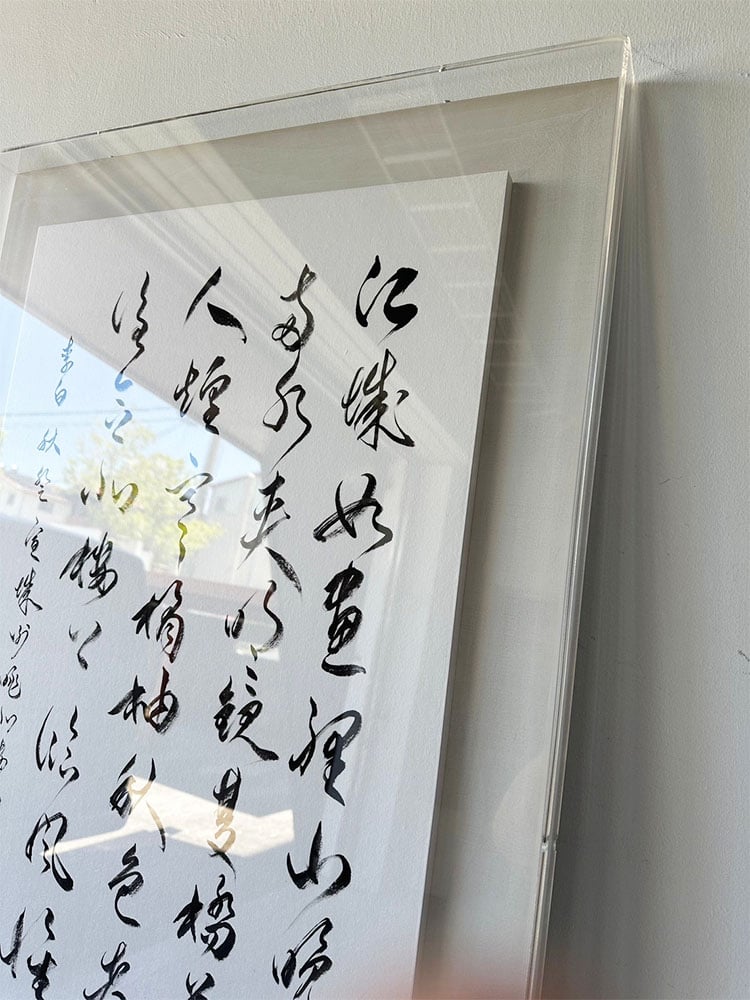 江城如畫裡山晚
兩水夾明鏡雙橋
人煙寒橘柚秋色
誰念北樓上臨風懷
李白秋登宣城謝朓北樓